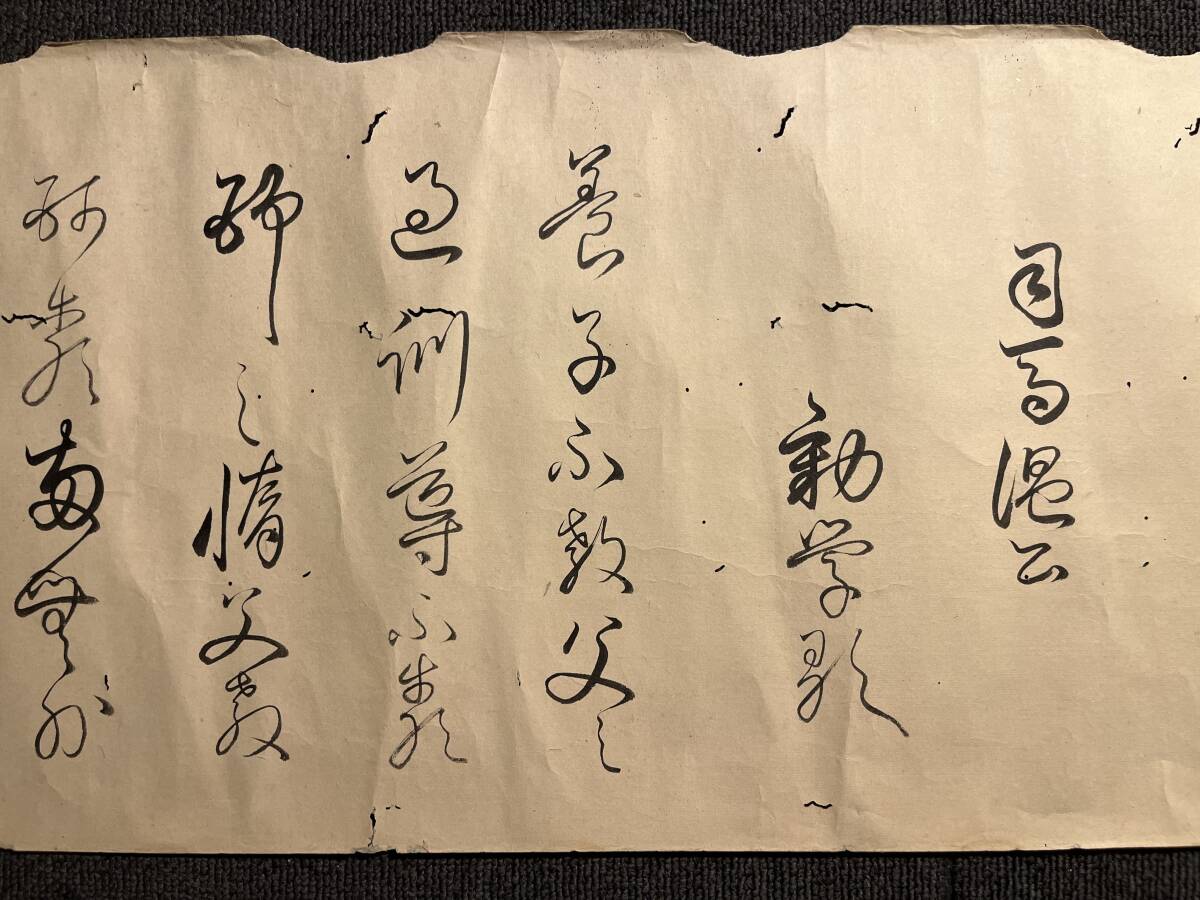 司馬温公
勧学歌
養子不教父之
過訓導不嚴
師之惰父教
師嚴両無外